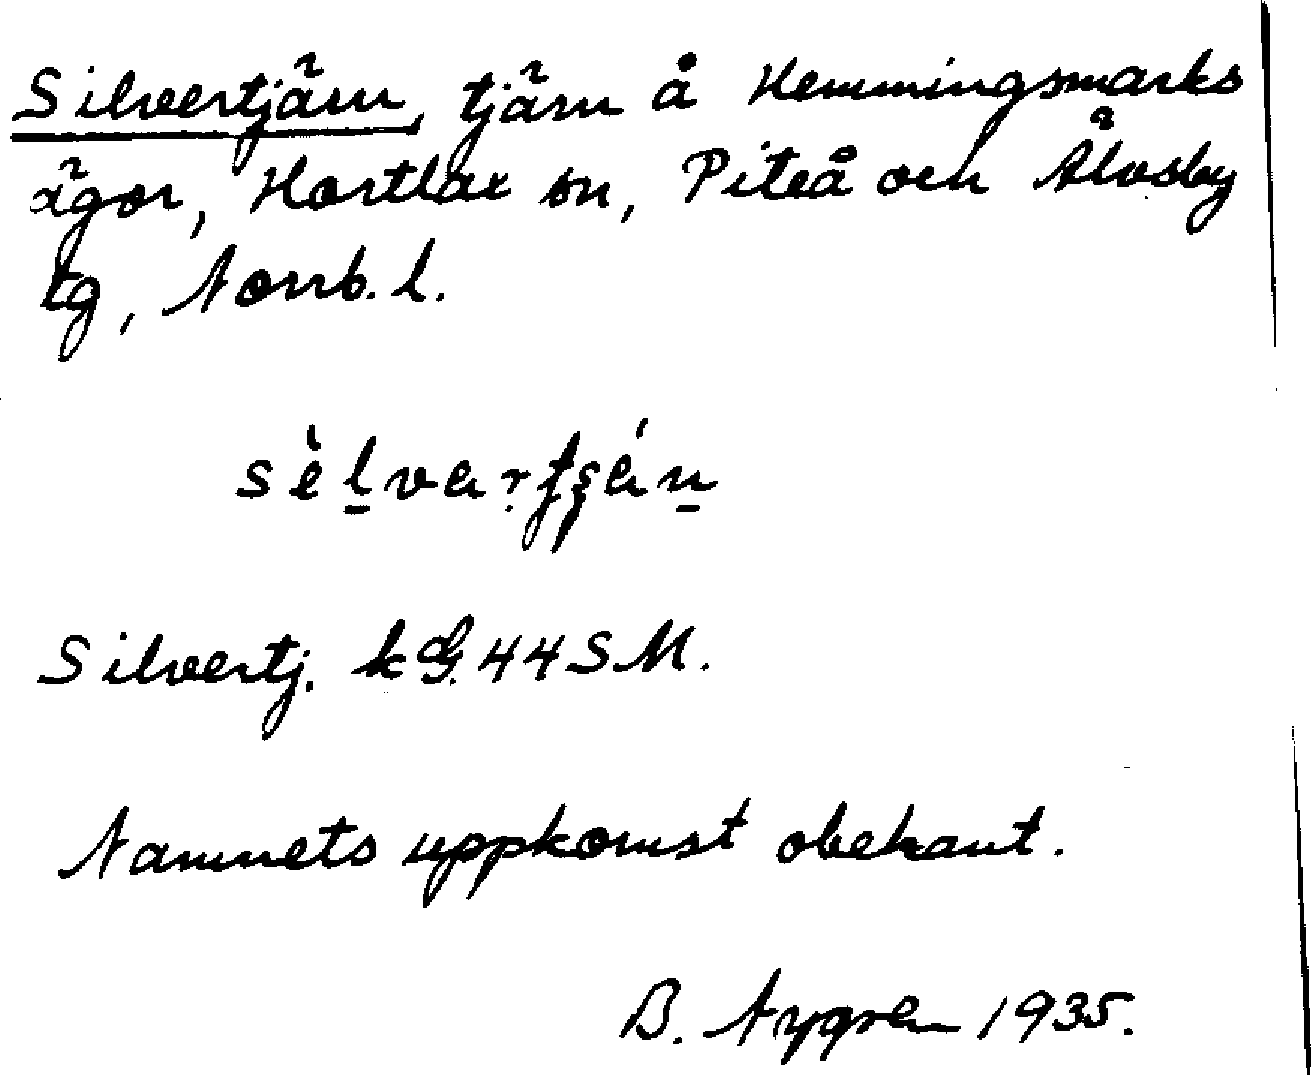 Silvertjärn, tjärn å Hemmingsmarks
ägor, Hortlax sn, Piteå och Älvsby
tg, Norrb. l.
Silvertj. kG. 44 SM.
Namnets uppkomst obekant.
B. Nygren 1935.